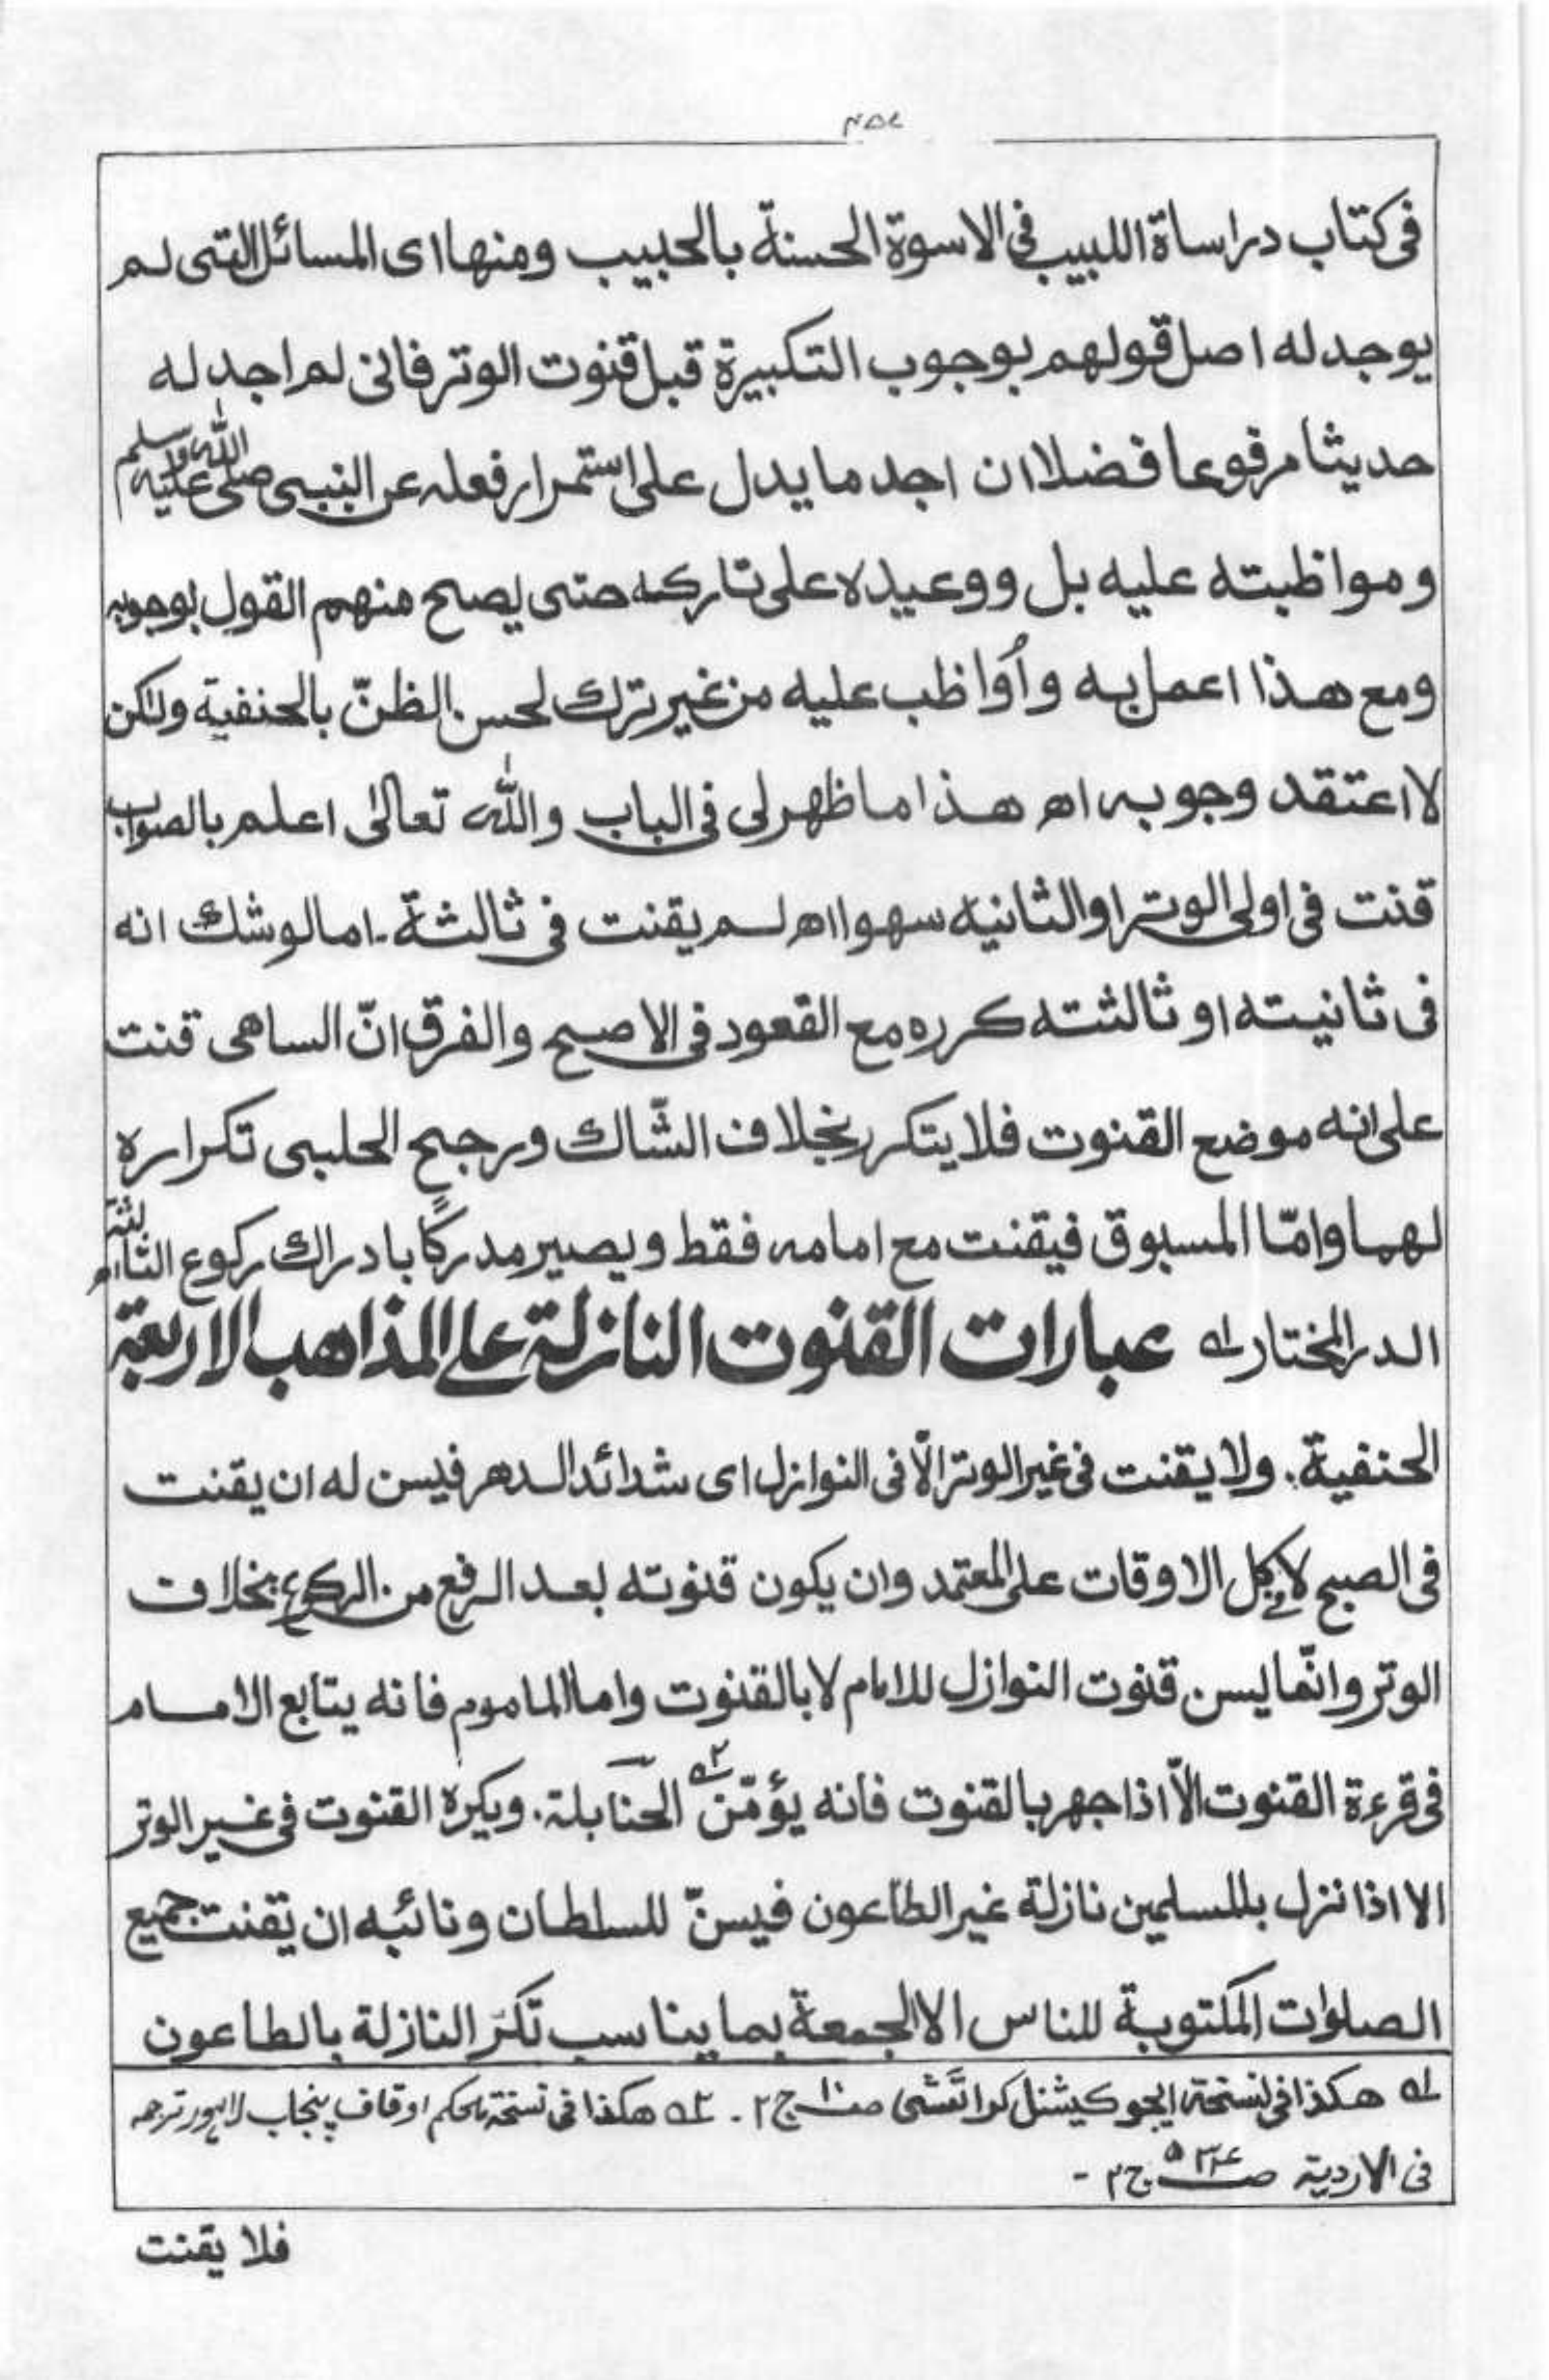 في كتاب دراساة اللبيب في الاسوة الحسنة بالحبيب ومنها اى المسائل التى لم
يوجد له اصل قولهم بوجوب التكبيرة قبل قنوت الوتر فانى لم اجد له
حديثا مرفوعا فضلا ان اجد ما يدل على استمرار فعله عن النبى صلى الله عليه وسلم
ومواظبته عليه بل ووعيده على تاركه حتى يصح منهم القول بوجوبه
ومع هذا اعمل به وأواظب عليه من غير ترك لحسن الظنّ بالحنفية ولكن
لا اعتقد وجوبه اھ هذا ما ظهر لى فى الباب والله تعالىٰ اعلم بالصواب
قنت فى اولى الوتر او الثانيه سهوا اھ لم يقنت فى ثالثة۔ اما لو شك انه
فى ثانيته او ثالثته كرره مع القعود فى الاصح والفرق انّ الساهى قنت
على انه موضع القنوت فلا يتكرر بخلاف الشّاك ورجح الحلبى تكراره
لهما وامّا المسبوق فيقنت مع امامه فقط ويصير مدركًا بادراك ركوع الثالثة اھ
الدر المختار لہ عبارات القنوت النازلة على المذاهب الاربعة
الحنفية. ولا يقنت فى غير الوتر الّا فى النوازل اى شدائد الدهر فيسن له ان يقنت
فى الصبح لا فى كل الاوقات على المعتمد وان يكون قنوته بعد الرفع من الركوع بخلاف
الوتر وانّما يسن قنوت النوازل للامام لا بالقنوت واما الماموم فانه يتابع الامام
فى قرءة القنوت الّا اذا جهر بالقنوت فانه يؤمّن ٢ہ الحنابلة. ويكره القنوت فى غير الوتر
الا اذا نزل بالمسلمين نازلة غير الطاعون فيسنّ للسلطان ونائبه ان يقنت جميع
الصلوات المكتوبة للناس الا الجمعة بما يناسب تكرّ النازلة بالطاعون
لہ هكذا فى نسخة ايجوكيشنل كراتشى ج٢ ۔ ٢ہ هكذا فى نسخة محكم اوقاف پنجاب لاہور ترجمہ
فى الاردية ج٢ ۔
فلا يقنت